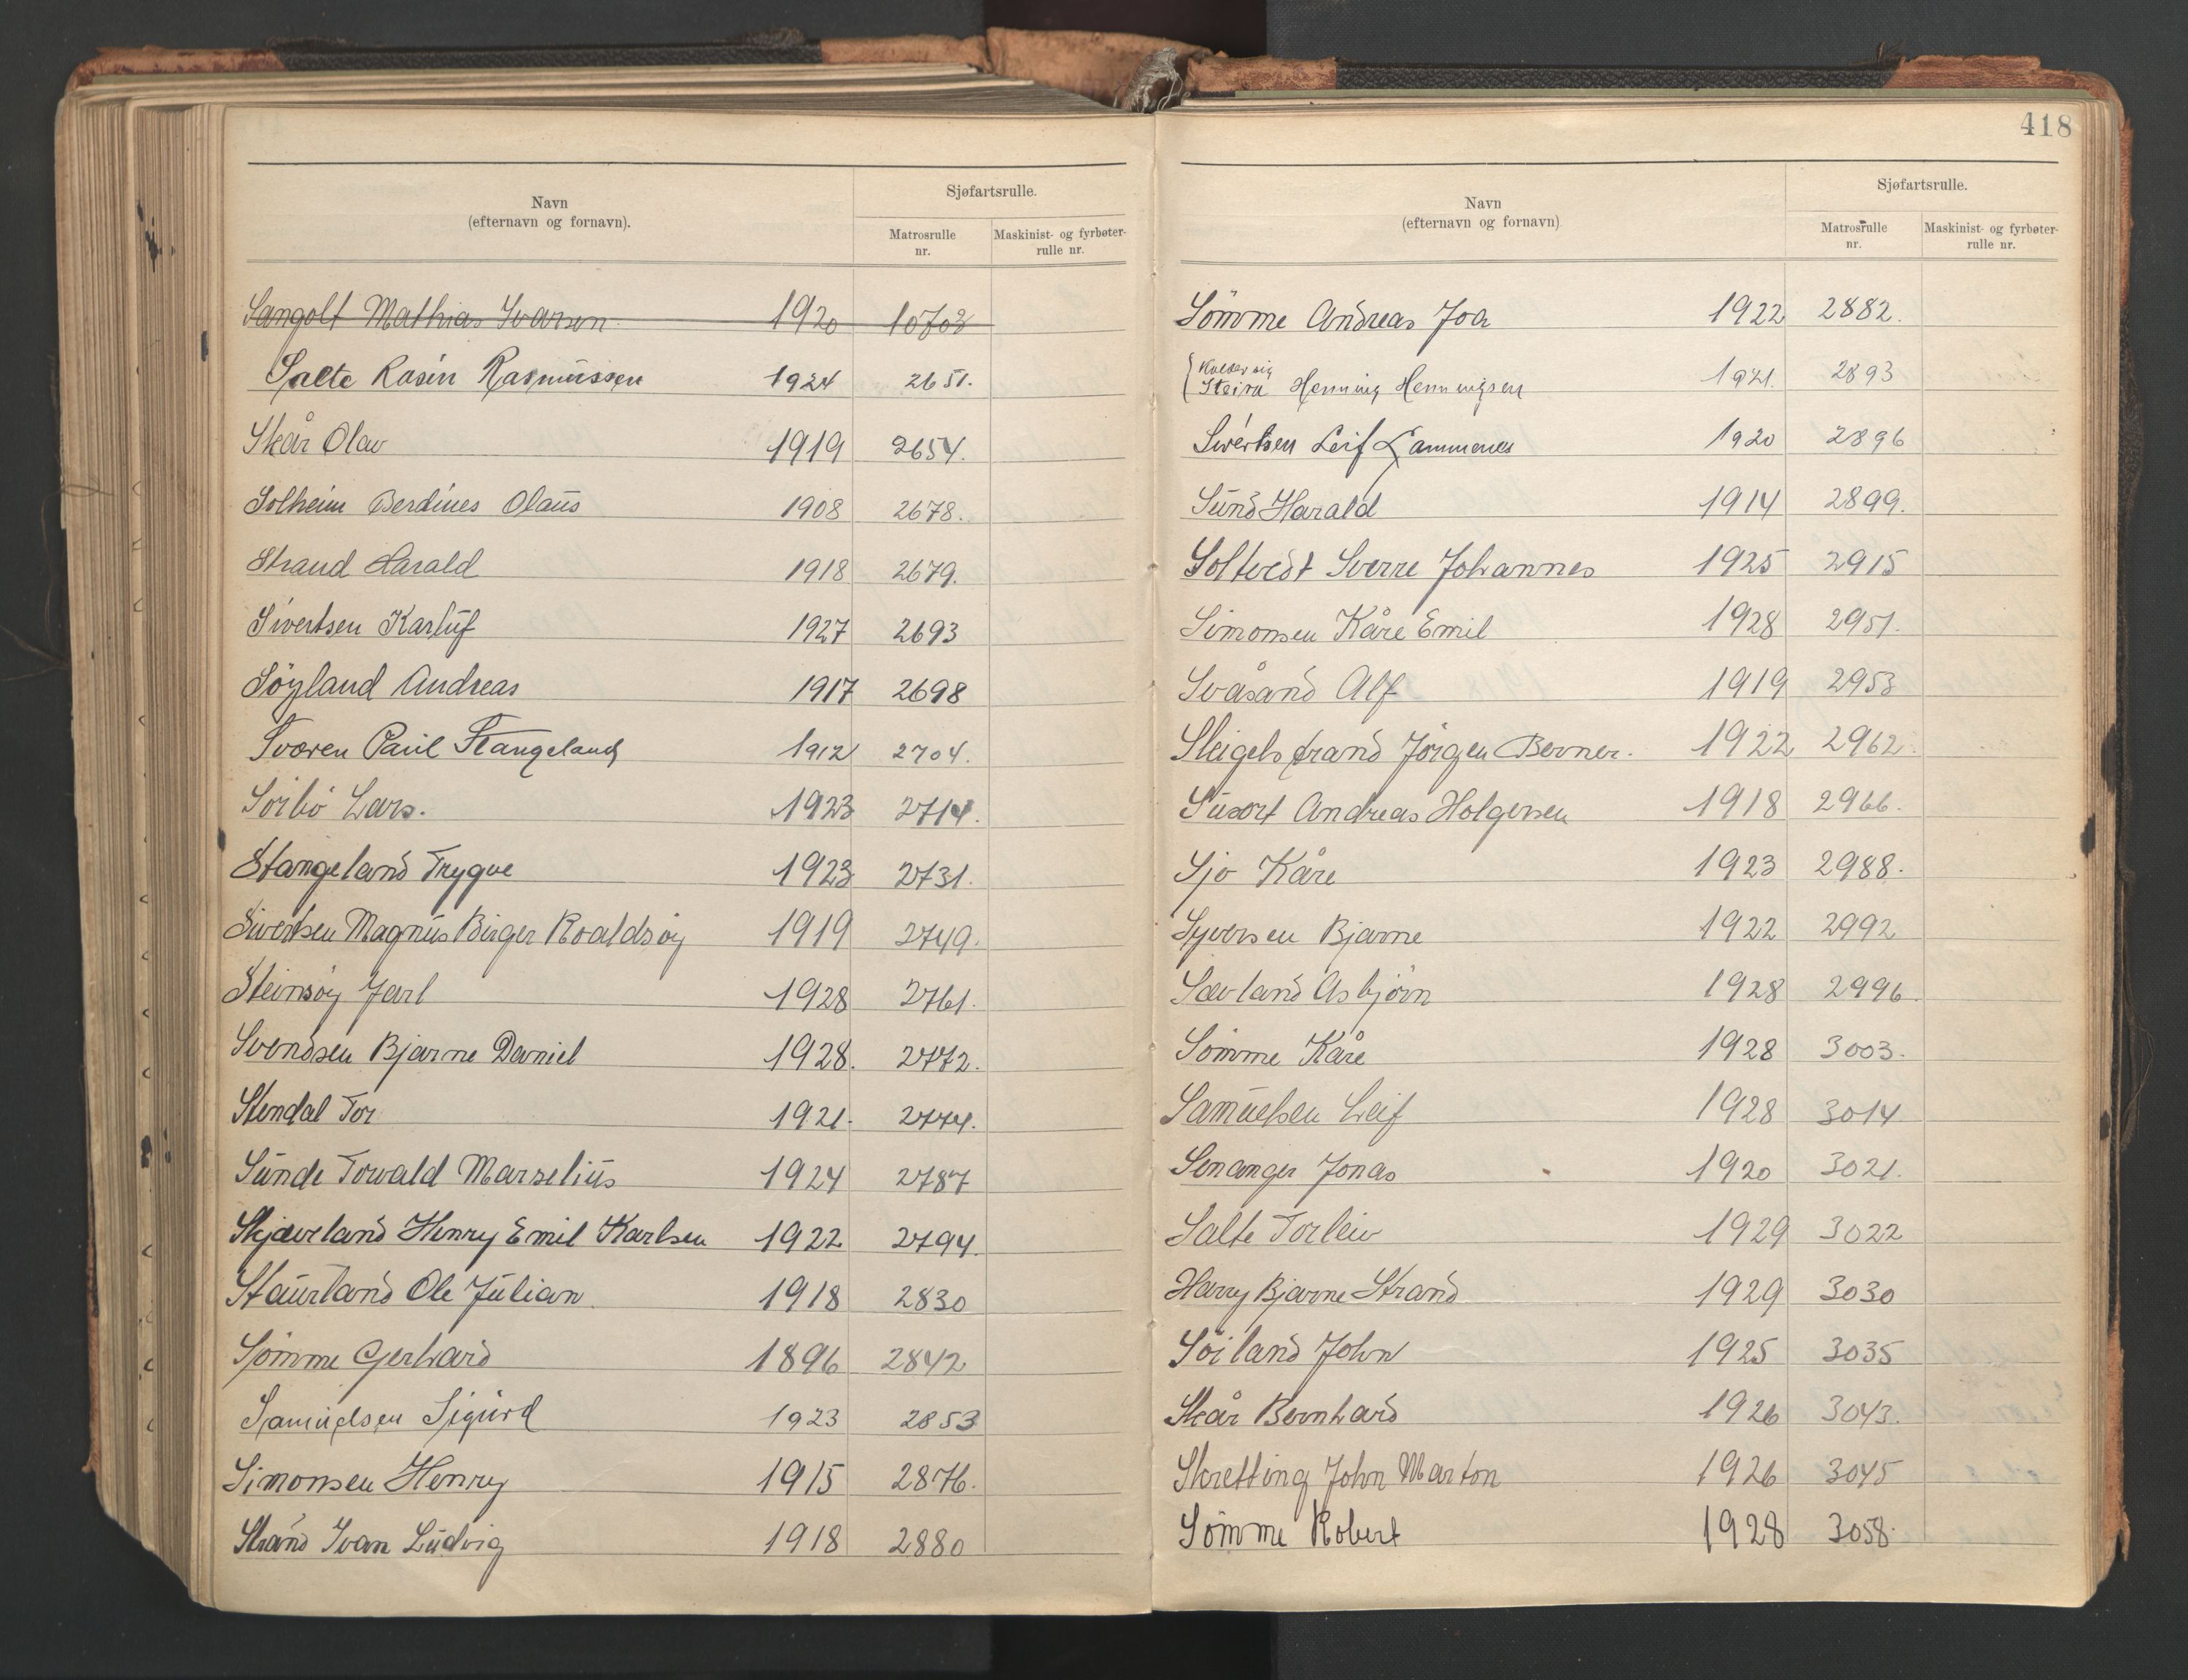 Navn
(efternavn og fornavn).
Sjøfartsrulle.
Matrosrulle
nr.
Maskinist- og fyrbøter-
rulle nr.
Sangolt Mathias Ivarsen 1920
Salte Rasin Rasmussen 1924 2651.
Skår Olav 1919 2654.
Solheim Berdines Olaus 1908 2678.
Strand Harald 1918 2679.
Sivertsen Karluf 1927 2693
Söyland Andreas 1917 2698
Sværen Paul Stangeland 1912 2704.
Soibö Lars. 1923 2714.
Stangeland Trygve 1923 2731.
Sivertsen Magnus Birger Roaldsøy 1919 2749.
Steinsøy Jarl 1928 2761.
Svendsen Bjarne Daniel 1928. 2772.
Stendal Tor 1921. 2774.
Sunde Torvald Marselius 1924 2787
Skjæverland Henry Emil Karlsen 1922 2794.
Staurland Ole Julian 1918 2830
Sömme Gerhard 1896 2842
Samuelsen Sigurd 1923 2853
Simonsen Henry 1915 2876.
Strand Ivan Ludvig 1918 2880
418
Navn
(efternavn og fornavn)
Sjøfartsrulle.
Matrosrulle
nr.
Maskinist- og fyrbøter-
rulle nr.
Sömme Andreas Joa 1922 2882.
Kalder sig
Steira Henning Henningsen 1921. 2893
Sivertsen Leif Lammenes 1920 2896
Sund Harald 1914 2899.
Soltvedt Sverre Johannes 1925 2915
Simonsen Kåre Emil 1928 2951.
Svåsand Alf 1919 2953
Skeigelstrand Jörgen Berner. 1922 2962.
Susort Andreas Holgersen 1918 2966.
Sjo Kåre 1923 2988.
Syversen Bjarne 1922 2992
Sævland Asbjörn 1928 2996.
Sömme Kåre 1928 3003.
Samuelsen Leif 1928 3014
Senanger Jonas 1920 3021.
Salte Torleiv 1929 3022
Harry Bjarne Strand 1929 3030
Söiland John 1925 3035
Skår Bernhard 1926 3043.
Skretting John Marton 1926 3045
Sömme Robert 1928 3058.